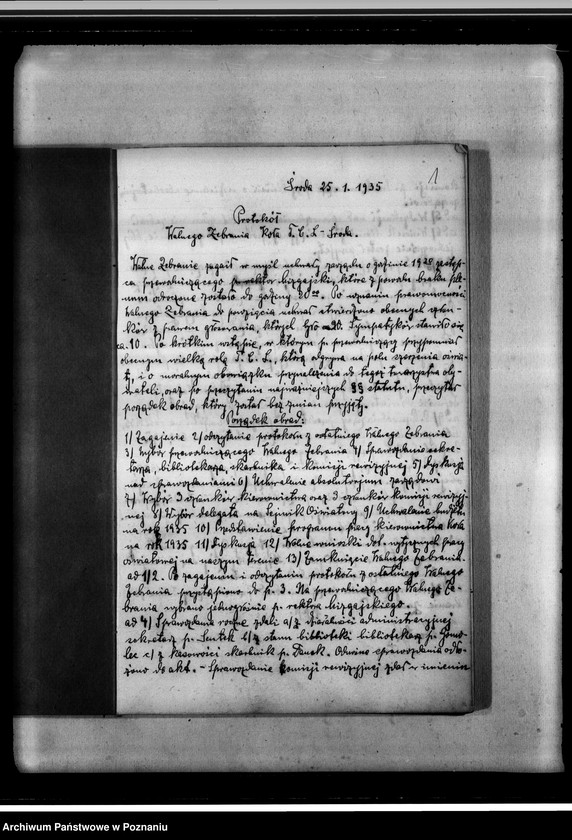 1
Środa 25.1.1935
Protokół
Walnego Zebrania Koła T.C.L-Środa.
Walne Zebranie zagaił w myśl uchwały zarządu o godzinie 19 zastęp-
ca przewodniczącego p. rektor bizgajski, które z powodu braku ple-
num odroczone zostało do godziny 20. Po uznaniu prawomocności
Walnego Zebrania do powzięcia uchwał stwierdzono obecnych człon-
ków z prawem głosowania, których było 20. Sympatyków stawiło się
ca. 10. Po krótkim wstępie, w którym p. przewodniczący przypomniał
obecnym wielką rolę T.C.L., którą odgrywa na polu szerzenia oświa-
ty, i o moralnym obowiązku przynależenia do tegoż towarzystwa oby-
wateli, oraz po przeczytaniu najważniejszych §§ statutu, przeczytał
porządek obrad, który został bez zmian przyjęty.
Porządek obrad:
1/ Zagajenie 2/ odczytanie protokółu z ostatniego Walnego Zebrania
3/ Wybór przewodniczącego Walnego Zebrania 4/ Sprawozdanie sekre-
tarza, bibliotekarza, skarbnika i komisji rewizyjnej 5/ Dyskusja
nad sprawozdaniami 6/ Uchwalenie absolutorjum zarządowi
7/ Wybór 3 członków kierownictwa oraz 3 członków komisji rewizyj-
nej 8/ Wybór delegata na Sejmik Oświatowy 9/ Uchwalenie budżetu
na rok 1935 10/ Przedstawienie programu pracy kierownictwa Koła
na rok 1935 11/ Dyskusja 12/ Wolne wnioski dot. wytycznych pracy
oświatowej na naszym terenie 13/ Zamknięcie Walnego Zebrania.
ad 1/2. Po zagajeniu i odczytaniu protokółu z ostatniego Walnego
Zebrania przystąpiono do p. 3. Na przewodniczącego Walnego Ze-
brania wybrano jednogłośnie p. rektora bizgajskiego.
ad 4/ Sprawozdania roczne zdali a/ z działalności administracyjnej
sekretarz p. b/ z stanu biblioteki bibliotekarz p.
c/ z kasowości skarbnik p. Danek. Odnośne sprawozdania odło-
żono do akt. - Sprawozdanie komisji rewizyjnej zdał w imieniu
Archiwum Państwowe w Poznaniu